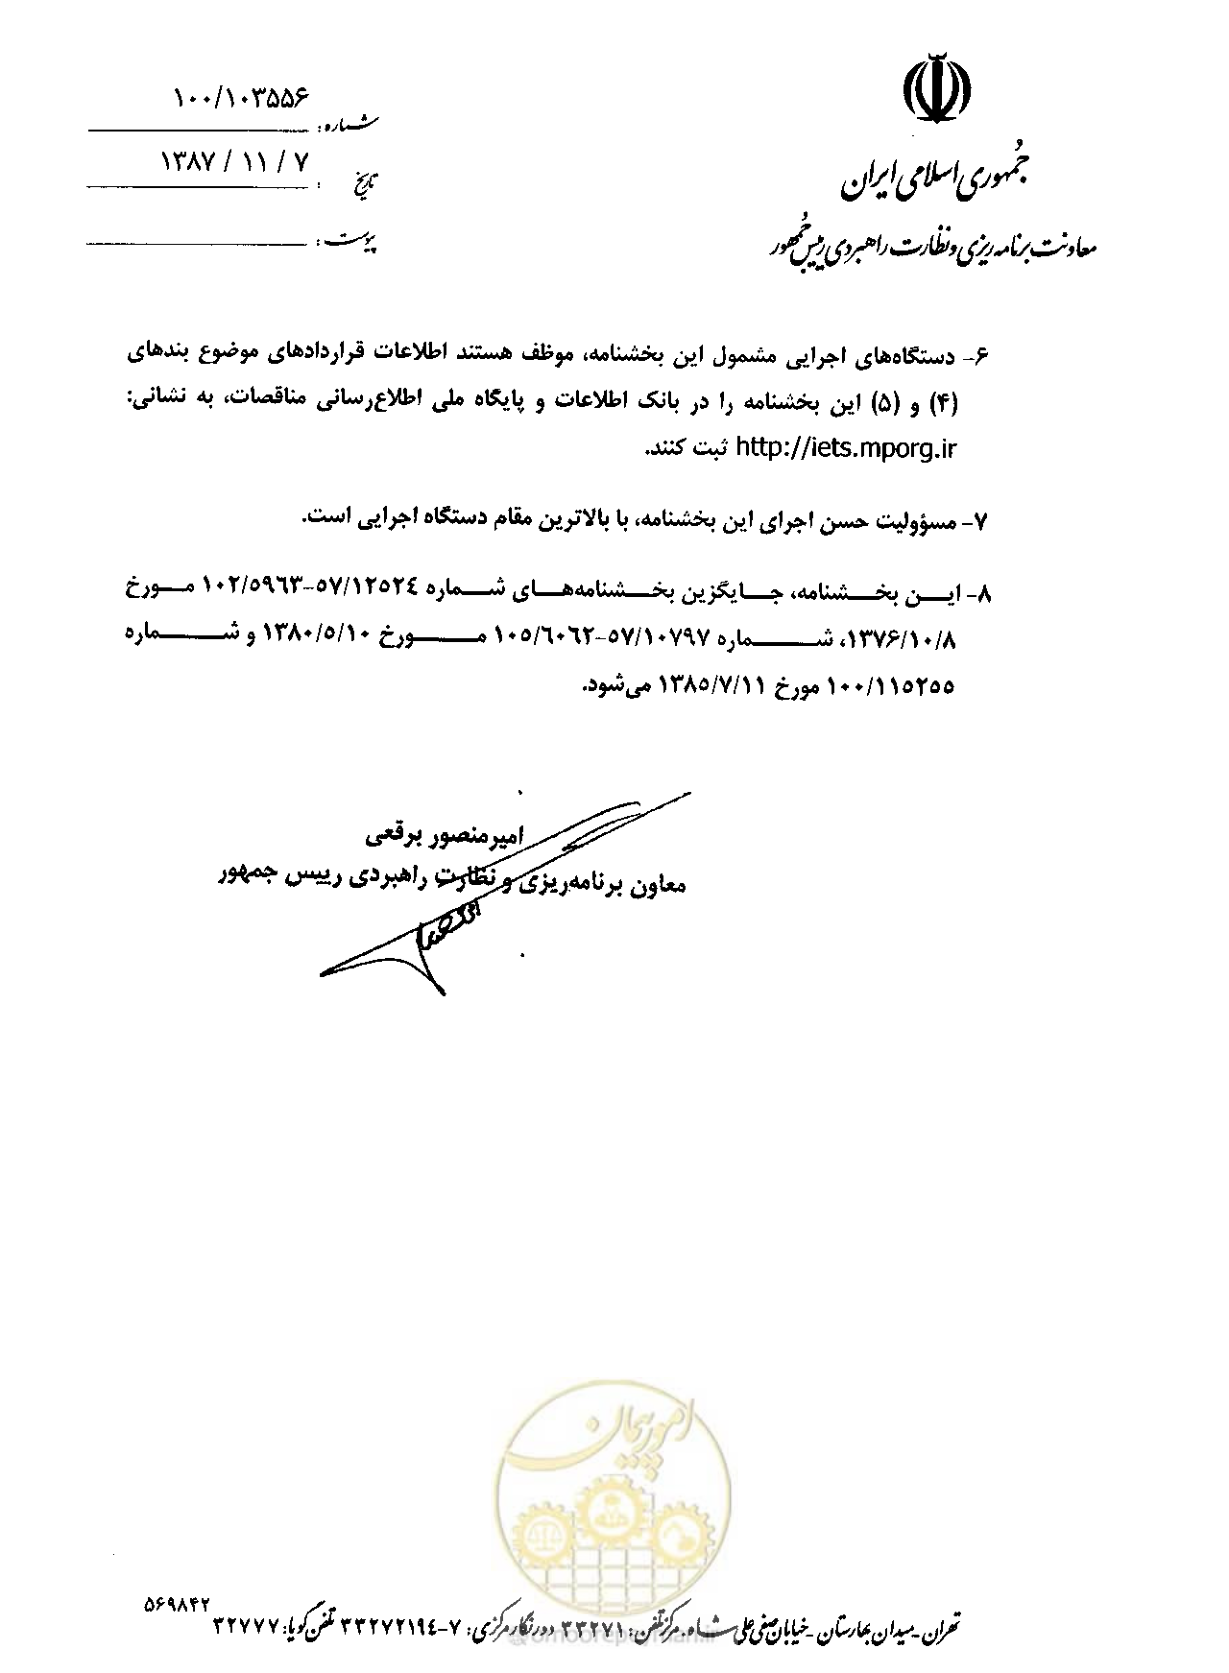 جمهوری اسلامی ایران
معاونت برنامه‌ریزی و نظارت راهبردی رییس جمهور
۱۰۰/۱۰۳۵۵۶
شماره :
۱۳۸۷ / ۱۱ / ۷
تاریخ :
پیوست :
۶- دستگاه‌های اجرایی مشمول این بخشنامه، موظف هستند اطلاعات قراردادهای موضوع بندهای
(۴) و (۵) این بخشنامه را در بانک اطلاعات و پایگاه ملی اطلاع‌رسانی مناقصات، به نشانی:
http://iets.mporg.ir ثبت کنند.
۷- مسؤولیت حسن اجرای این بخشنامه، با بالاترین مقام دستگاه اجرایی است.
۸- ایـــن بخـــشنامه، جـــایگزین بخـــشنامه‌هـــای شـــماره ۵۷/۱۲۵۲۴-۱۰۲/۵۹۶۳ مـــورخ
۱۳۷۶/۱۰/۸، شـــماره ۵۷/۱۰۷۹۷-۱۰۵/۶۰۶۲ مـــورخ ۱۳۸۰/۵/۱۰ و شـــماره
۱۰۰/۱۱۵۲۵۵ مورخ ۱۳۸۵/۷/۱۱ می‌شود.
امیرمنصور برقعی
معاون برنامه‌ریزی و نظارت راهبردی رییس جمهور
امور پیمان
@omoorepeyman.ir
تهران ـ میدان بهارستان ـ خیابان صفی علی شاه ـ مرکز تلفن: ۳۳۲۷۱ دورنگار مرکزی: ۷-۳۳۲۷۲۱۹۴ تلفن گویا: ۳۲۷۷۷
۵۶۹۸۴۲